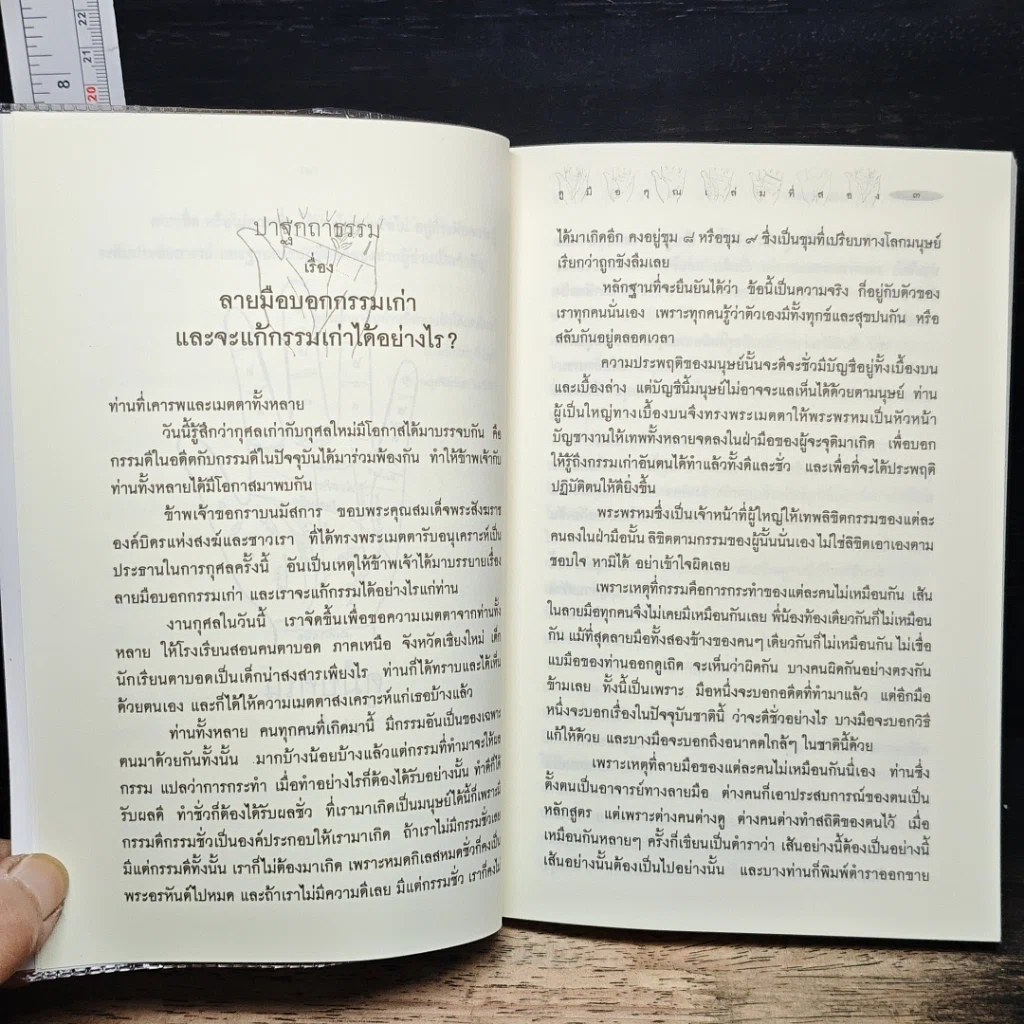 8
20
21
22
ปาฐกถาธรรม
เรื่อง
ลายมือบอกกรรมเก่า
และจะแก้กรรมเก่าได้อย่างไร ?
ท่านที่เคารพและเมตตาทั้งหลาย
วันนี้รู้สึกว่ากุศลเก่ากับกุศลใหม่มีโอกาสได้มาบรรจบกัน คือ
กรรมดีในอดีตกับกรรมดีในปัจจุบันได้มาร่วมพ้องกัน ทำให้ข้าพเจ้ากับ
ท่านทั้งหลายได้มีโอกาสมาพบกัน
ข้าพเจ้าขอกราบนมัสการ ขอบพระคุณสมเด็จพระสังฆราช
องค์บิดรแห่งสงฆ์และชาวเรา ที่ได้ทรงพระเมตตารับอนุเคราะห์เป็น
ประธานในการกุศลครั้งนี้ อันเป็นเหตุให้ข้าพเจ้าได้มาบรรยายเรื่อง
ลายมือบอกกรรมเก่า และเราจะแก้กรรมได้อย่างไรแก่ท่าน
งานกุศลในวันนี้ เราจัดขึ้นเพื่อขอความเมตตาจากท่านทั้ง
หลาย ให้โรงเรียนสอนคนตาบอด ภาคเหนือ จังหวัดเชียงใหม่ เด็ก
นักเรียนตาบอดเป็นเด็กน่าสงสารเพียงไร ท่านก็ได้ทราบและได้เห็น
ด้วยตนเอง และก็ได้ให้ความเมตตาสงเคราะห์แก่เธอบ้างแล้ว
ท่านทั้งหลาย คนทุกคนที่เกิดมานี้ มีกรรมอันเป็นของเฉพาะ
ตนมาด้วยกันทั้งนั้น มากบ้างน้อยบ้างแล้วแต่กรรมที่ทำมาจะให้ผล
กรรม แปลว่าการกระทำ เมื่อทำอย่างไรก็ต้องได้รับอย่างนั้น ทำดีก็ได้
รับผลดี ทำชั่วก็ต้องได้รับผลชั่ว ที่เรามาเกิดเป็นมนุษย์ได้นี้ก็เพราะมี
กรรมดีกรรมชั่วเป็นองค์ประกอบให้เรามาเกิด ถ้าเราไม่มีกรรมชั่วเลย
มีแต่กรรมดีทั้งนั้น เราก็ไม่ต้องมาเกิด เพราะหมดกิเลสหมดชั่วก็คงเป็น
พระอรหันต์ไปหมด และถ้าเราไม่มีความดีเลย มีแต่กรรมชั่ว เราก็คงไม่
คู่มือคุณเล่มที่สอง ๓
ได้มาเกิดอีก คงอยู่ขุม ๘ หรือขุม ๙ ซึ่งเป็นขุมที่เปรียบทางโลกมนุษย์
เรียกว่าถูกขังลืมเลย
หลักฐานที่จะยืนยันได้ว่า ข้อนี้เป็นความจริง ก็อยู่กับตัวของ
เราทุกคนนั่นเอง เพราะทุกคนรู้ว่าตัวเองมีทั้งทุกข์และสุขปนกัน หรือ
สลับกันอยู่ตลอดเวลา
ความประพฤติของมนุษย์นั้นจะดีจะชั่วมีบัญชีอยู่ทั้งเบื้องบน
และเบื้องล่าง แต่บัญชีนี้มนุษย์ไม่อาจจะแลเห็นได้ด้วยตามนุษย์ ท่าน
ผู้เป็นใหญ่ทางเบื้องบนจึงทรงพระเมตตาให้พระพรหมเป็นหัวหน้า
บัญชางานให้เทพทั้งหลายจดลงในฝ่ามือของผู้จะจุติมาเกิด เพื่อบอก
ให้รู้ถึงกรรมเก่าอันตนได้ทำแล้วทั้งดีและชั่ว และเพื่อที่จะได้ประพฤติ
ปฏิบัติตนให้ดียิ่งขึ้น
พระพรหมซึ่งเป็นเจ้าหน้าที่ผู้ใหญ่ให้เทพลิขิตกรรมของแต่ละ
คนลงในฝ่ามือนั้น ลิขิตตามกรรมของผู้นั้นนั่นเอง ไม่ใช่ลิขิตเอาเองตาม
ชอบใจ หามิได้ อย่าเข้าใจผิดเลย
เพราะเหตุที่กรรมคือการกระทำของแต่ละคนไม่เหมือนกัน เส้น
ในลายมือทุกคนจึงไม่เคยมีเหมือนกันเลย พี่น้องท้องเดียวกันก็ไม่เหมือน
กัน แม้ที่สุดลายมือทั้งสองข้างของคนๆ เดียวกันก็ไม่เหมือนกัน ไม่เชื่อ
แบมือของท่านออกดูเถิด จะเห็นว่าผิดกัน บางคนผิดกันอย่างตรงกัน
ข้ามเลย ทั้งนี้เป็นเพราะ มือหนึ่งจะบอกอดีตที่ทำมาแล้ว แต่อีกมือ
หนึ่งจะบอกเรื่องในปัจจุบันชาตินี้ ว่าจะดีชั่วอย่างไร บางมือจะบอกวิธี
แก้ให้ด้วย และบางมือจะบอกถึงอนาคตใกล้ๆ ในชาตินี้ด้วย
เพราะเหตุที่ลายมือของแต่ละคนไม่เหมือนกันนี่เอง ท่านซึ่ง
ตั้งตนเป็นอาจารย์ทางลายมือ ต่างคนก็เอาประสบการณ์ของตนเป็น
หลักสูตร แต่เพราะต่างคนต่างดู ต่างคนต่างทำสถิติของตนไว้ เมื่อ
เหมือนกันหลายๆ ครั้งก็เขียนเป็นตำราว่า เส้นอย่างนี้ต้องเป็นอย่างนี้
เส้นอย่างนั้นต้องเป็นไปอย่างนั้น และบางท่านก็พิมพ์ตำราออกขาย